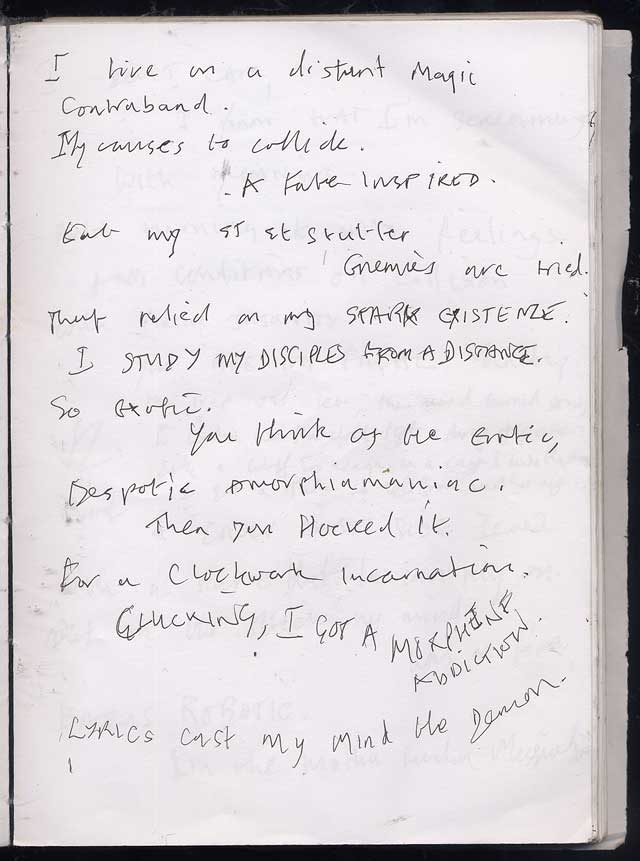 I live on a distant Magic
Contraband.
My causes to collide.
A Fate INSPIRED.
Eat my st st stutter
Enemies are tried.
That relied on my STARK EXISTENZE.
I STUDY MY DISCIPLES FROM A DISTANCE.
So exotic.
You think of the erotic,
Despotic amorphiamaniac.
Then you Hocked it.
For a Clockwork Incarnation.
CLUCKING, I GOT A MORPHINE
ADDICTION.
LYRICS cast my mind the Demon.